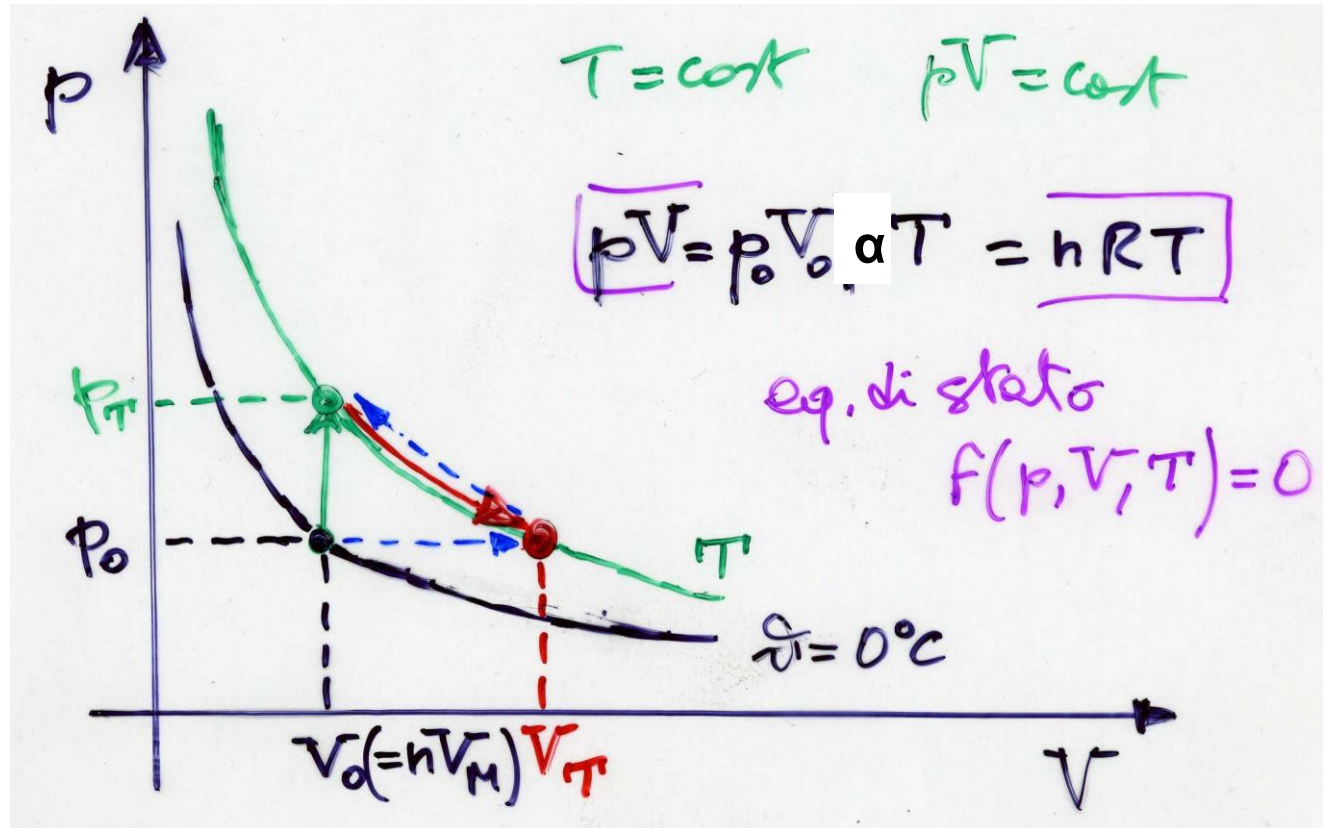 p
T = cost pV = cost
pV = p₀V₀ α T = nRT
eq. di stato
f(p, V, T) = 0
p_T
p₀
T
ϑ = 0°C
V₀(=nV_M) V_T
V